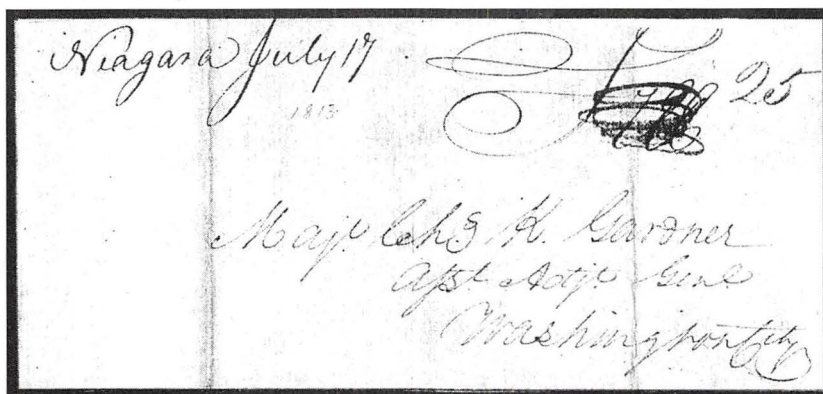 Niagara July 17 25
1813
Majr. Chs K. Gardner
Asst Adjt Genl
Washington City